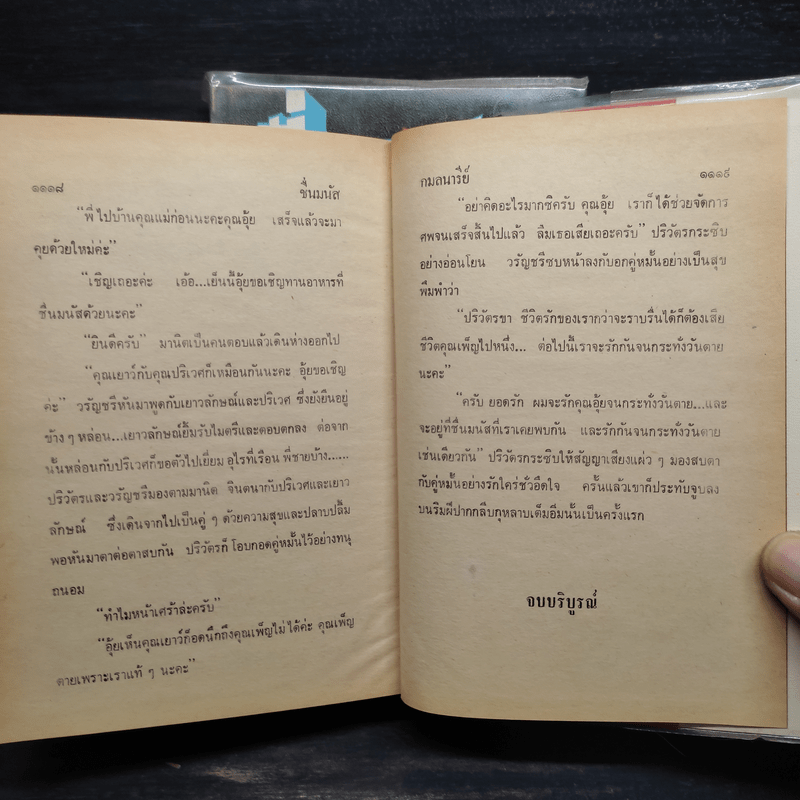 ๑๑๑๘ ชื่นมนัส
“พี่ไปบ้านคุณแม่ก่อนนะคะคุณอุ้ย เสร็จแล้วจะมา
คุยด้วยใหม่ค่ะ”
“เชิญเถอะค่ะ เอ้อ...เย็นนี้อุ้ยขอเชิญทานอาหารที่
ชื่นมนัสด้วยนะคะ”
“ยินดีครับ” มานิตเป็นคนตอบแล้วเดินห่างออกไป
“คุณเยาว์กับคุณปริเวศก็เหมือนกันนะคะ อุ้ยขอเชิญ
ค่ะ” วรัญชรีหันมาพูดกับเยาวลักษณ์และปริเวศ ซึ่งยังยืนอยู่
ข้าง ๆ หล่อน...เยาวลักษณ์ยิ้มรับไมตรีและตอบตกลง ต่อจาก
นั้นหล่อนกับปริเวศก็ขอตัวไปเยี่ยมอุไรที่เรือนพี่ชายบ้าง......
ปริวัตรและวรัญชรีมองตามมานิต จินตนากับปริเวศและเยาว
ลักษณ์ ซึ่งเดินจากไปเป็นคู่ ๆ ด้วยความสุขและปลาบปลื้ม
พอหันมาตาต่อตาสบกัน ปริวัตรก็โอบกอดคู่หมั้นไว้อย่างทนุ
ถนอม
“ทำไมหน้าเศร้าล่ะครับ”
“อุ้ยเห็นคุณเยาว์ก็อดนึกถึงคุณเพ็ญไม่ได้ค่ะ คุณเพ็ญ
ตายเพราะเราแท้ ๆ นะคะ”
กมลนารีย์ ๑๑๑๙
“อย่าคิดอะไรมากซิครับ คุณอุ้ย เราก็ได้ช่วยจัดการ
ศพจนเสร็จสิ้นไปแล้ว ลืมเธอเสียเถอะครับ” ปริวัตรกระซิบ
อย่างอ่อนโยน วรัญชรีซบหน้าลงกับอกคู่หมั้นอย่างเป็นสุข
พึมพำว่า
“ปริวัตรขา ชีวิตรักของเรากว่าจะราบรื่นได้ก็ต้องเสีย
ชีวิตคุณเพ็ญไปหนึ่ง... ต่อไปนี้เราจะรักกันจนกระทั่งวันตาย
นะคะ”
“ครับ ยอดรัก ผมจะรักคุณอุ้ยจนกระทั่งวันตาย...และ
จะอยู่ที่ชื่นมนัสที่เราเคยพบกัน และรักกันจนกระทั่งวันตาย
เช่นเดียวกัน” ปริวัตรกระซิบให้สัญญาเสียงแผ่ว ๆ มองสบตา
กับคู่หมั้นอย่างรักใคร่ชั่วอึดใจ ครั้นแล้วเขาก็ประทับจูบลง
บนริมฝีปากกลีบกุหลาบเต็มอิ่มนั้นเป็นครั้งแรก
จบบริบูรณ์